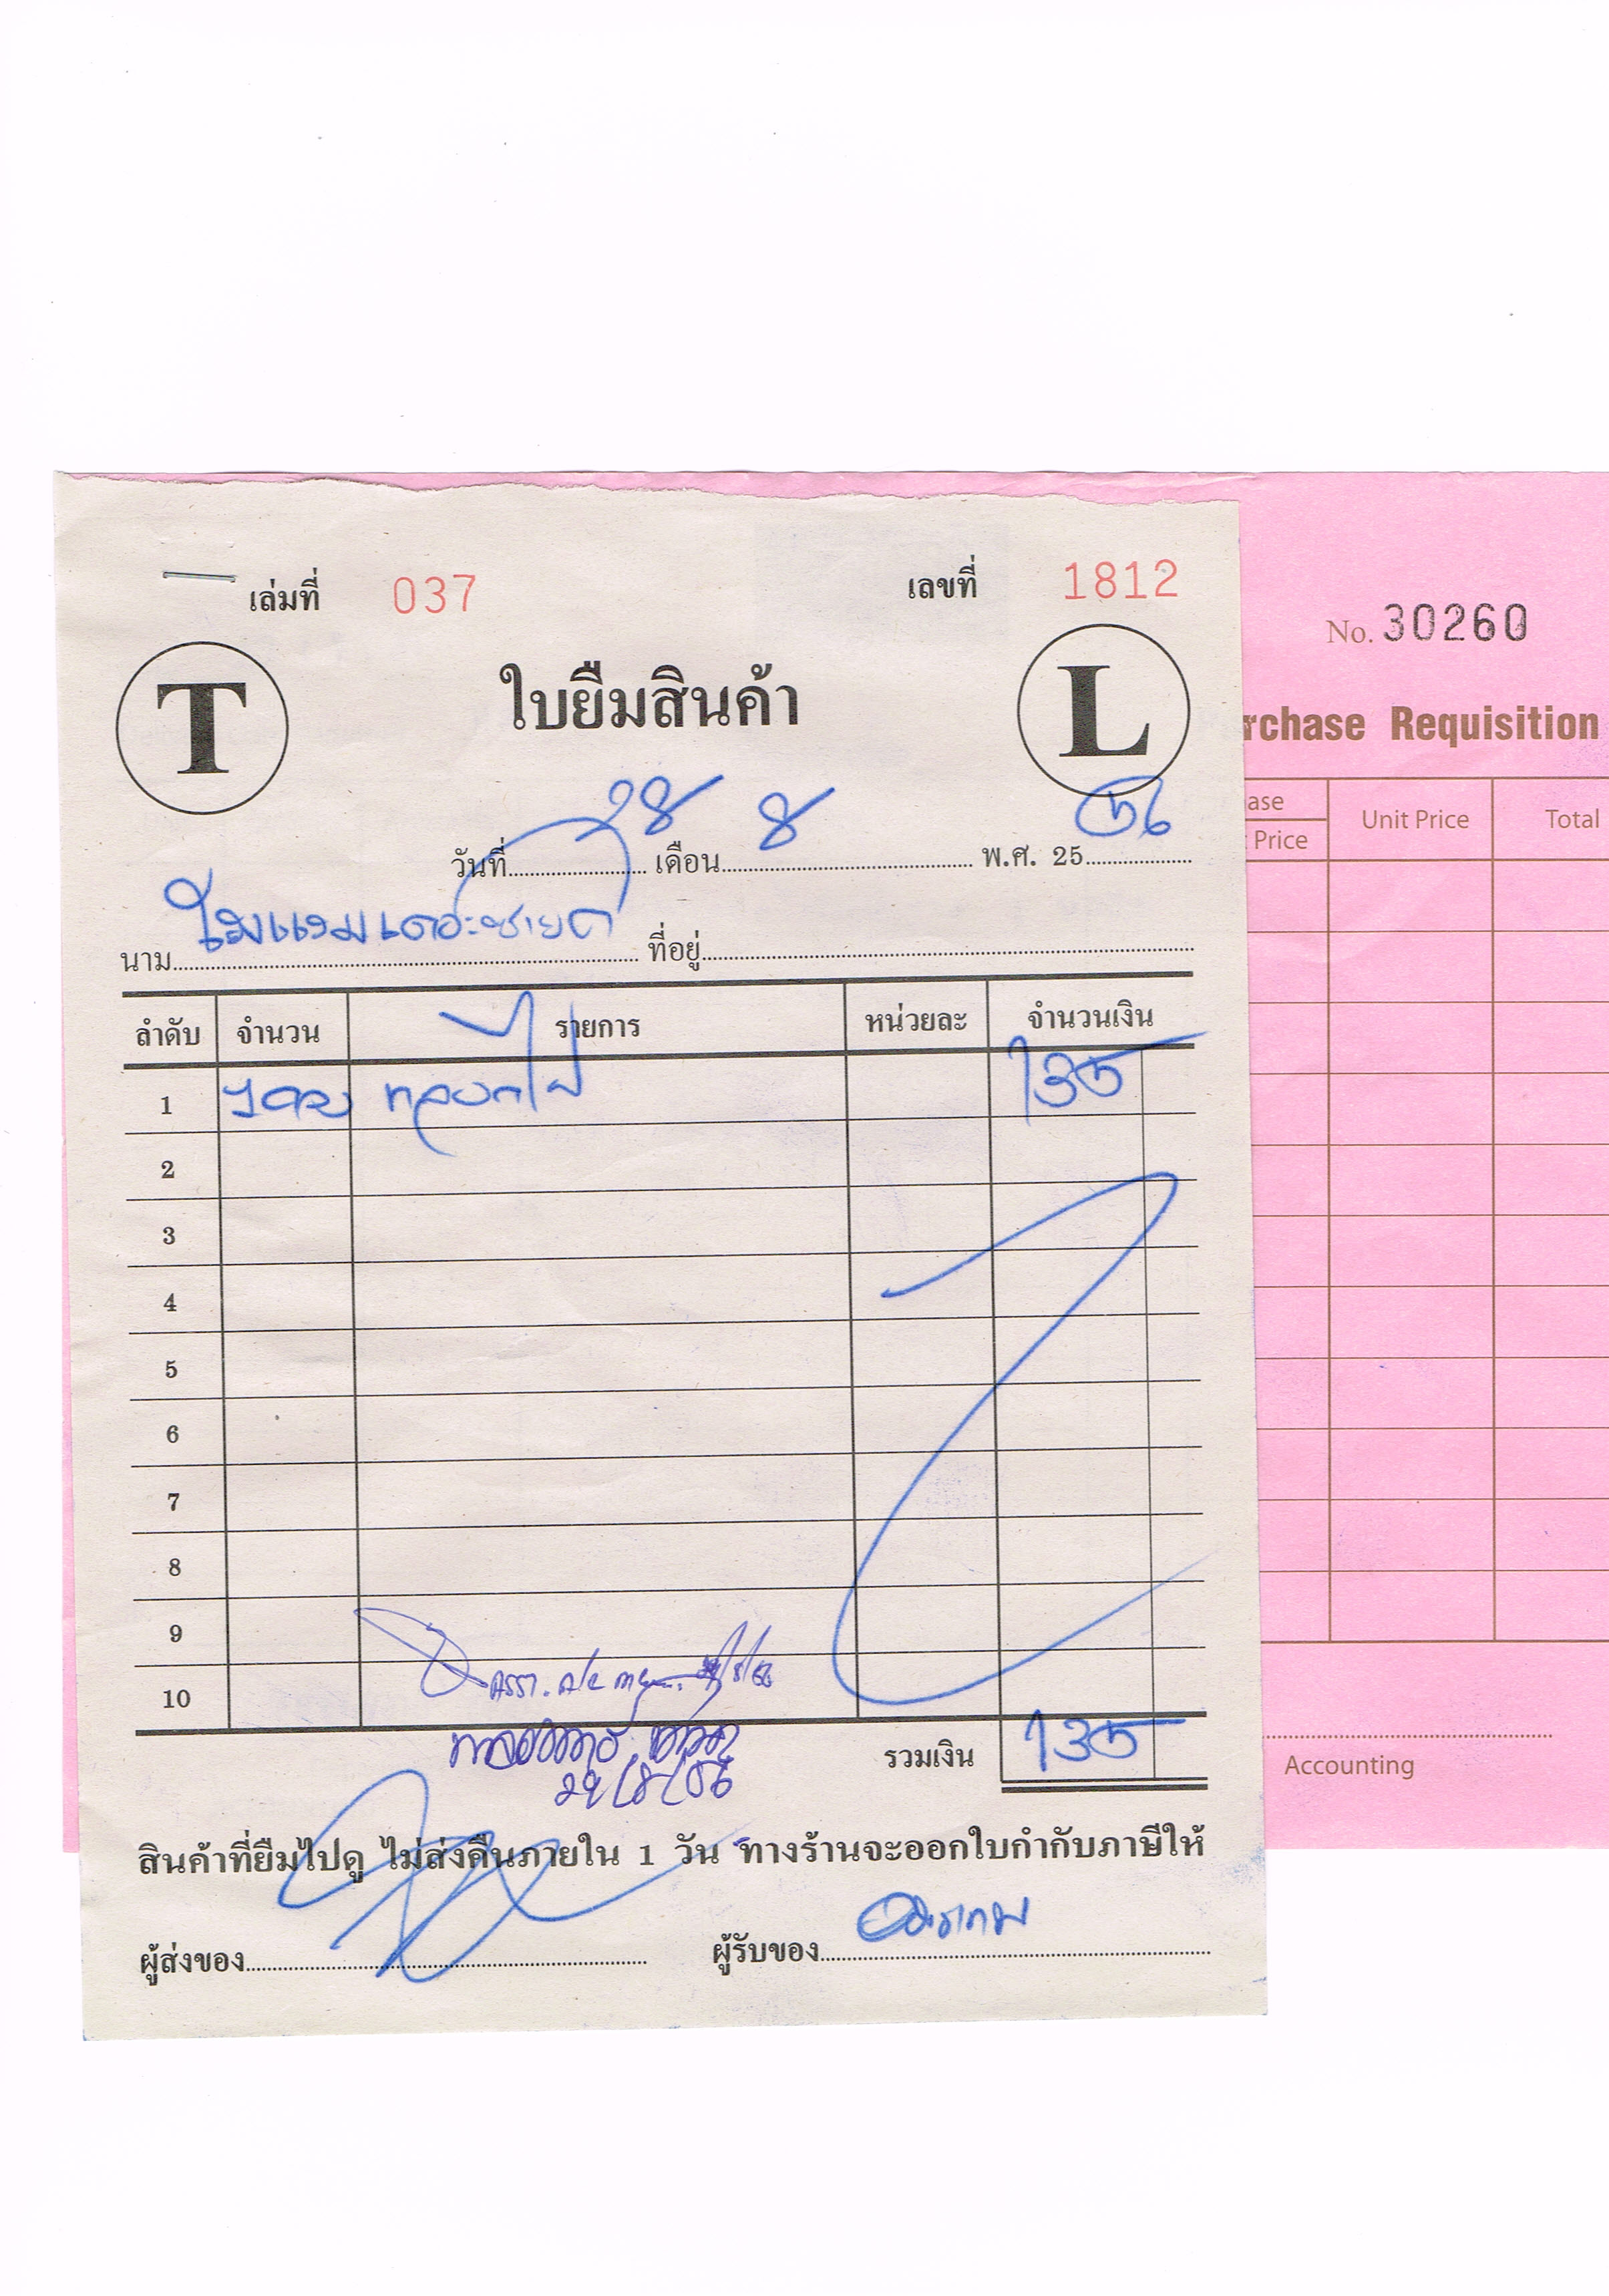 เล่มที่ 037 เลขที่ 1812
T ใบยืมสินค้า L
วันที่ 28 เดือน 8 พ.ศ. 25 56
นาม โรงแรมเดอะซายด์ ที่อยู่
ลำดับ จำนวน รายการ หน่วยละ จำนวนเงิน
1 135
2
3
4
5
6
7
8
9
10
29/8/56
รวมเงิน 135
สินค้าที่ยืมไปดู ไม่ส่งคืนภายใน 1 วัน ทางร้านจะออกใบกำกับภาษีให้
ผู้ส่งของ ผู้รับของ
No. 30260
rchase Requisition
ase Unit Price Total
Price
Accounting